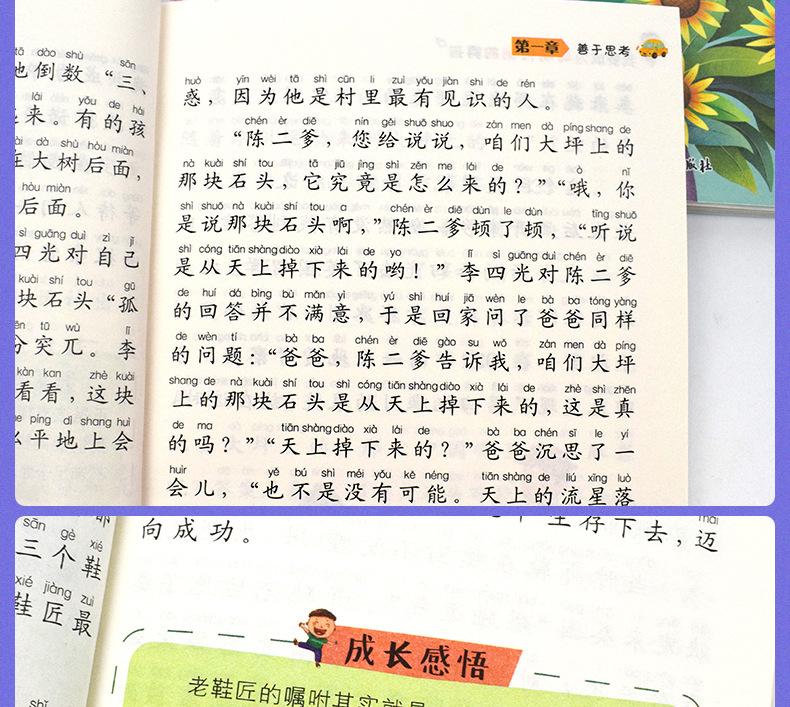 dào shù sān
倒数“三、
lái yǒu de hái
来。有的孩
dà shù hòu miàn
在大树后面,
hòu miàn
后面。
sì guāng duì zì jǐ
四光对自己
kuài shí tou gū
块石头“孤
tū wù lǐ
突兀。李
kàn kan zhè kuài
看看,这块
píng dì shang huì
平地上会
第一章 善于思考
huò yīn wèi tā shì cūn li zuì yǒu jiàn shi de rén
惑,因为他是村里最有见识的人。
chén èr diē nín gěi shuō shuo zán men dà píng shang de
“陈二爹,您给说说,咱们大坪上的
nà kuài shí tou tā jiū jìng shì zěn me lái de ò nǐ
那块石头,它究竟是怎么来的?”“哦,你
shì shuō nà kuài shí tou a chén èr diē dùn le dùn tīng shuō
是说那块石头啊,”陈二爹顿了顿,“听说
shì cóng tiān shàng diào xià lái de yo lǐ sì guāng duì chén èr diē
是从天上掉下来的哟!”李四光对陈二爹
de huí dá bìng bù mǎn yì yú shì huí jiā wèn le bà ba tóng yàng
的回答并不满意,于是回家问了爸爸同样
de wèn tí bà ba chén èr diē gào su wǒ zán men dà píng
的问题:“爸爸,陈二爹告诉我,咱们大坪
shang de nà kuài shí tou shì cóng tiān shàng diào xià lái de zhè shì zhēn
上的那块石头是从天上掉下来的,这是真
de ma tiān shàng diào xià lái de bà ba chén sī le yí
的吗?”“天上掉下来的?”爸爸沉思了一
huìr yě bú shì méi yǒu kě néng tiān shàng de liú xīng luò
会儿,“也不是没有可能。天上的流星落
sān gè xié
三个鞋
xié jiàng zuì
鞋匠最
mài
生存下去,迈
向成功。
成长感悟
老鞋匠的嘱咐其实就是